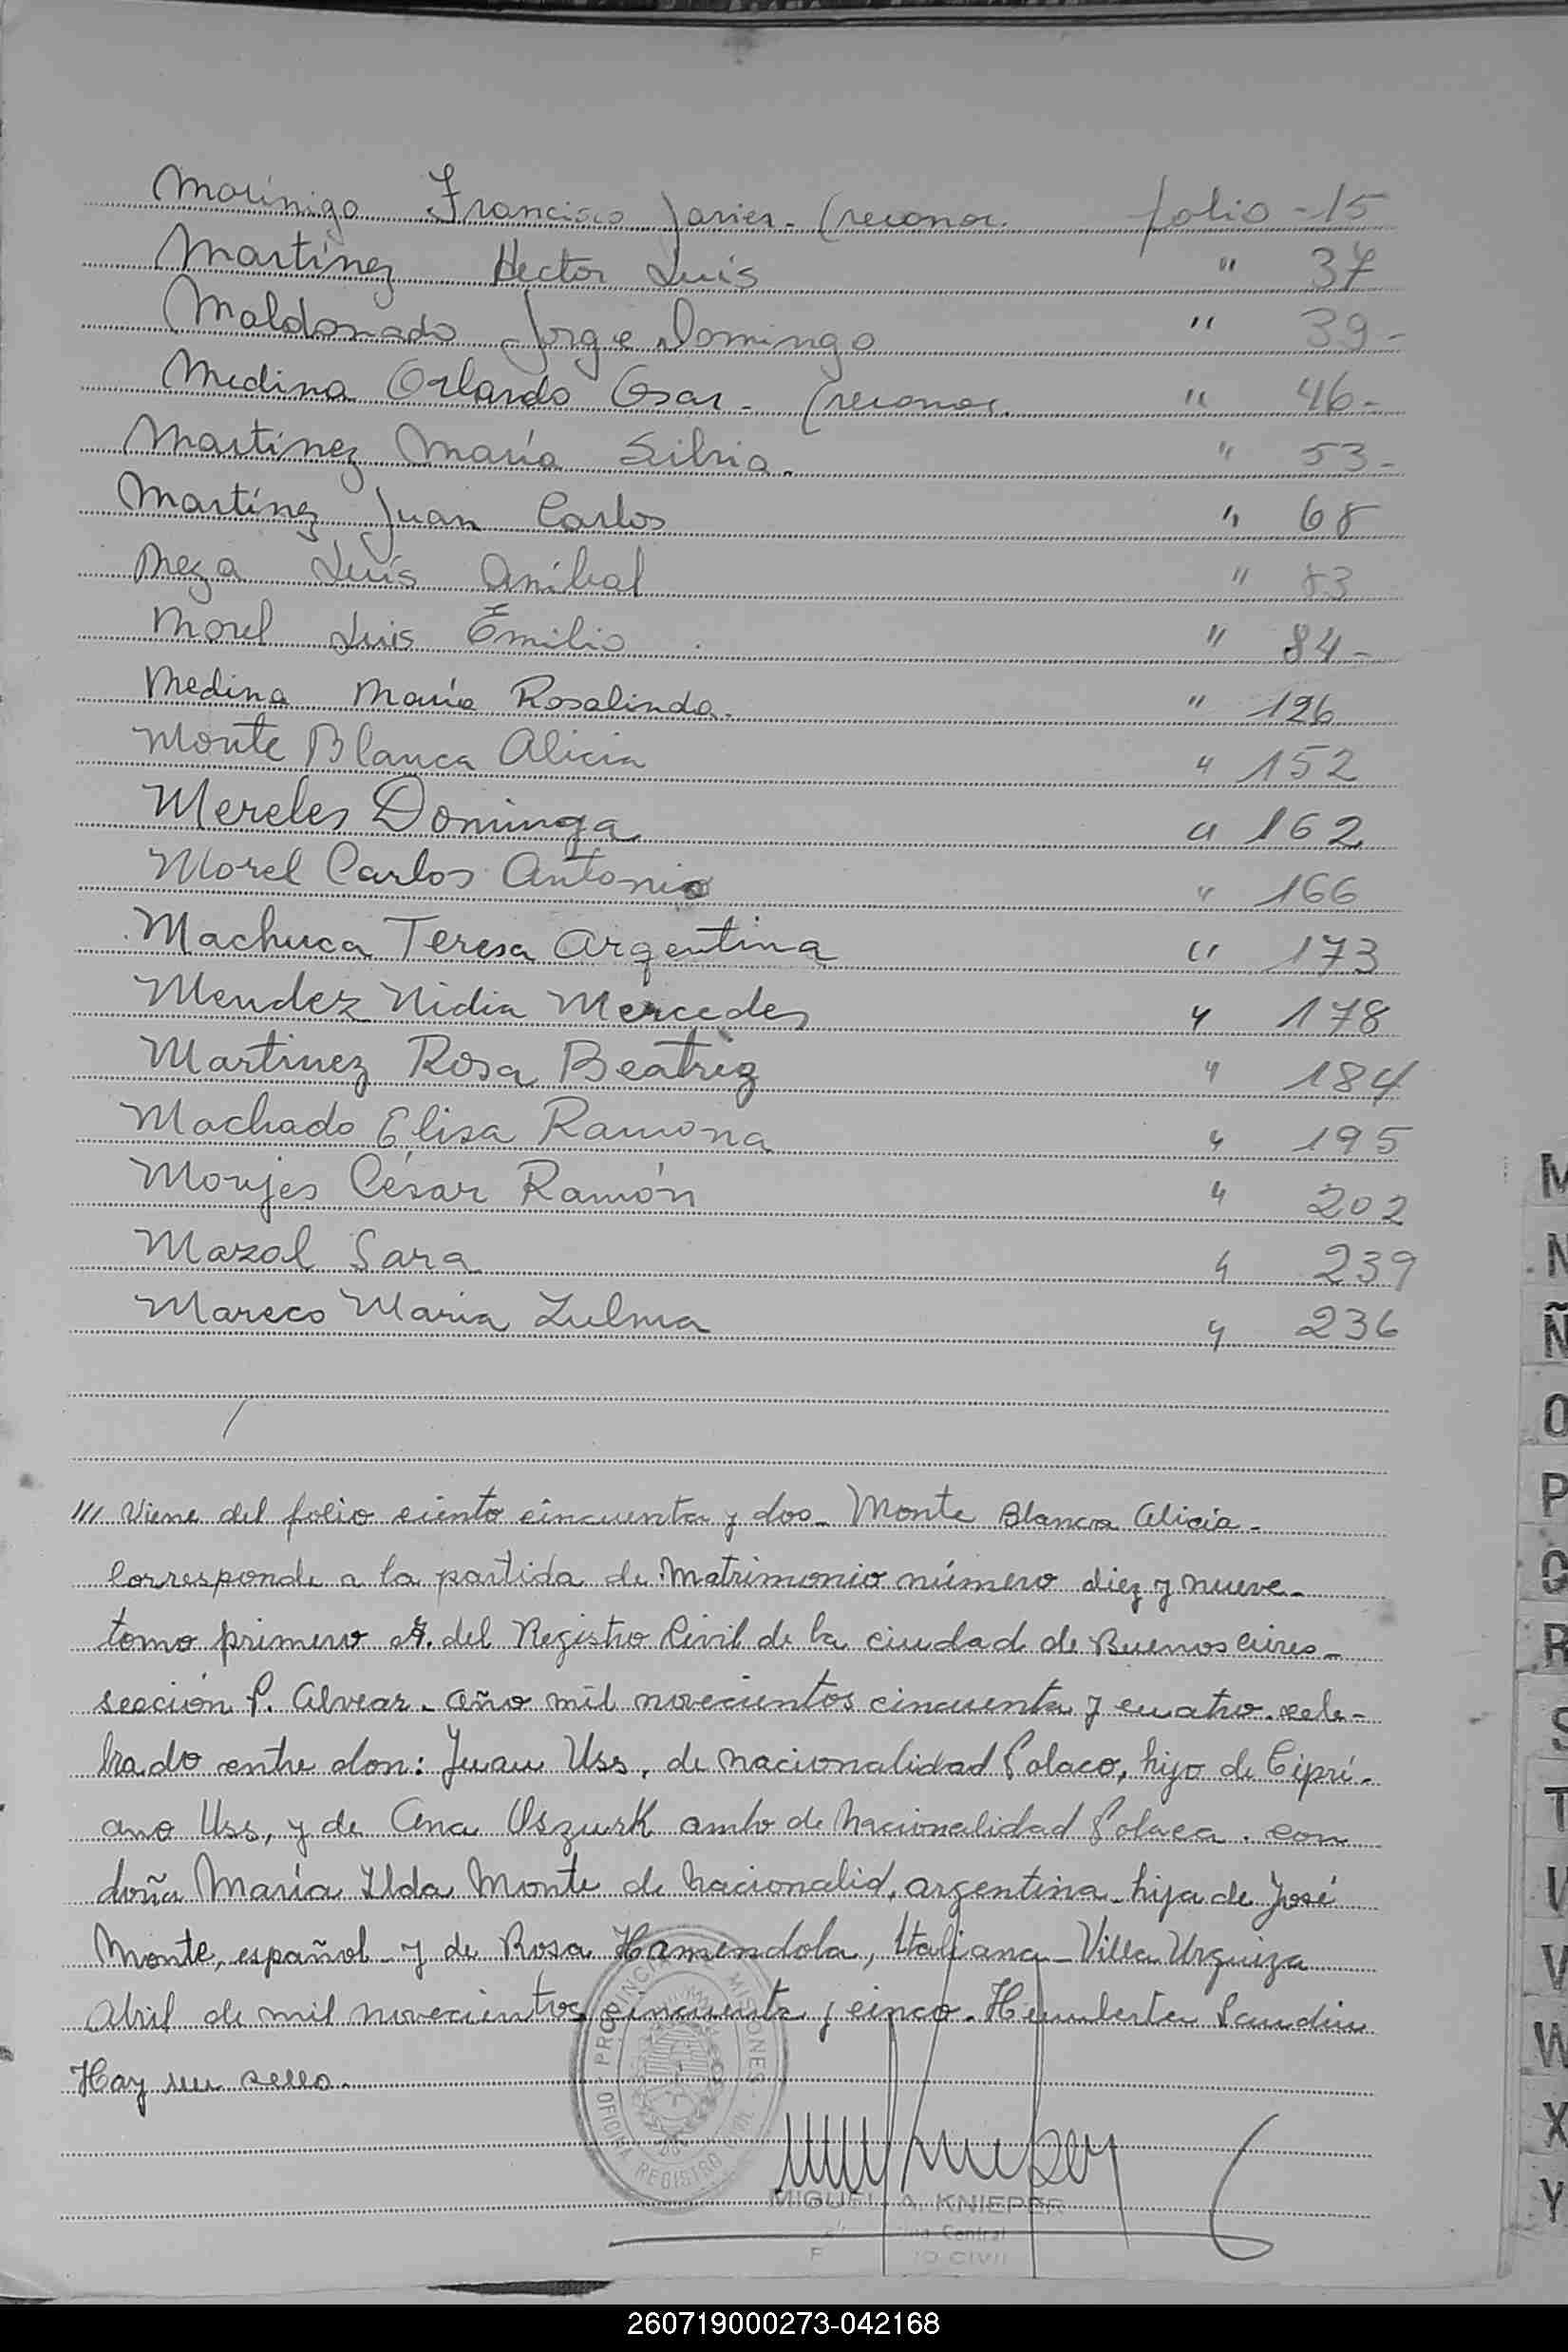 Morínigo Francisco Javier - (reconoc. folio - 15
Martínez Hector Luis " 37
Maldonado Jorge Domingo " 39 -
Medina Orlando Cesar - (reconoc. " 46 -
Martínez María Silvia. " 53 -
Martínez Juan Carlos " 68
Meza Luis Aníbal " 83
Morel Luis Emilio " 84 -
Medina María Rosalinda. " 126
Monte Blanca Alicia " 152
Mereles Dominga " 162
Morel Carlos Antonio " 166
Machuca Teresa Argentina " 173
Mendez Nidia Mercedes " 178
Martinez Rosa Beatriz " 184
Machado Elisa Ramona " 195
Monjes César Ramón " 202
Mazal Sara " 239
Mareco Maria Zulma " 236
/// Viene del folio ciento cincuenta y dos - Monte Blanca Alicia -
Corresponde a la partida de Matrimonio número diez y nueve -
tomo primero del Registro Civil de la ciudad de Buenos Aires -
sección P. Alvear - año mil novecientos cincuenta y cuatro. cele-
brado entre don: Juan Uss, de nacionalidad Polaco, hijo de Cipri-
ano Uss, y de Ana Oszurk ambo de nacionalidad Polaca. con
doña María Ilda Monte de nacionalid. argentina - hija de José
Monte, español y de Rosa Hamendola, Italiana - Villa Urquiza
Abril de mil novecientos cincuenta y cinco - Humberto
Hay un sello -
PROVINCIA DE MISIONES
OFICINA REGISTRO CIVIL
MIGUEL A. KNIEPER
Central
CIVIL
M
N
Ñ
O
P
Q
R
S
T
U
V
W
X
Y
260719000273-042168